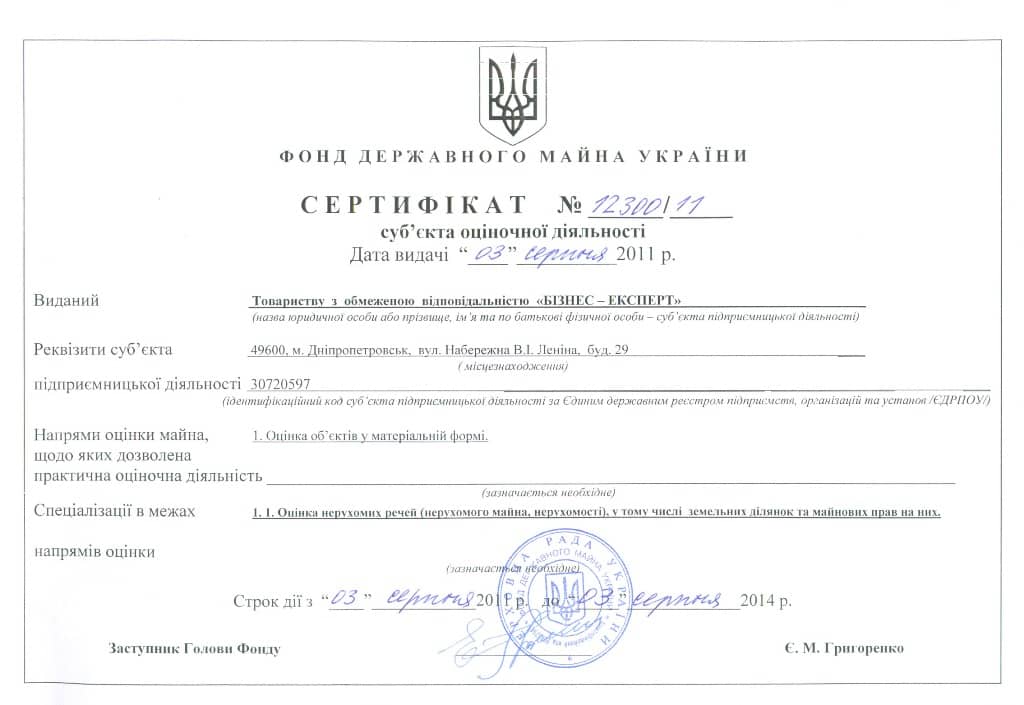 ФОНД ДЕРЖАВНОГО МАЙНА УКРАЇНИ
СЕРТИФІКАТ № 12300/11
суб’єкта оціночної діяльності
Дата видачі “03” серпня 2011 р.
Виданий Товариству з обмеженою відповідальністю «БІЗНЕС – ЕКСПЕРТ»
(назва юридичної особи або прізвище, ім’я та по батькові фізичної особи – суб’єкта підприємницької діяльності)
Реквізити суб’єкта 49600, м. Дніпропетровськ, вул. Набережна В.І. Леніна, буд. 29
( місцезнаходження)
підприємницької діяльності 30720597
(ідентифікаційний код суб’єкта підприємницької діяльності за Єдиним державним реєстром підприємств, організацій та установ /ЄДРПОУ/)
Напрями оцінки майна, 1. Оцінка об’єктів у матеріальній формі.
щодо яких дозволена
практична оціночна діяльність
(зазначається необхідне)
Спеціалізації в межах 1. 1. Оцінка нерухомих речей (нерухомого майна, нерухомості), у тому числі земельних ділянок та майнових прав на них.
напрямів оцінки
(зазначається необхідне)
ВЕРХОВНА РАДА УКРАЇНИ
ФОНД ДЕРЖАВНОГО МАЙНА УКРАЇНИ
Строк дії з “03” серпня 2011 р. до “03” серпня 2014 р.
Заступник Голови Фонду Є. М. Григоренко